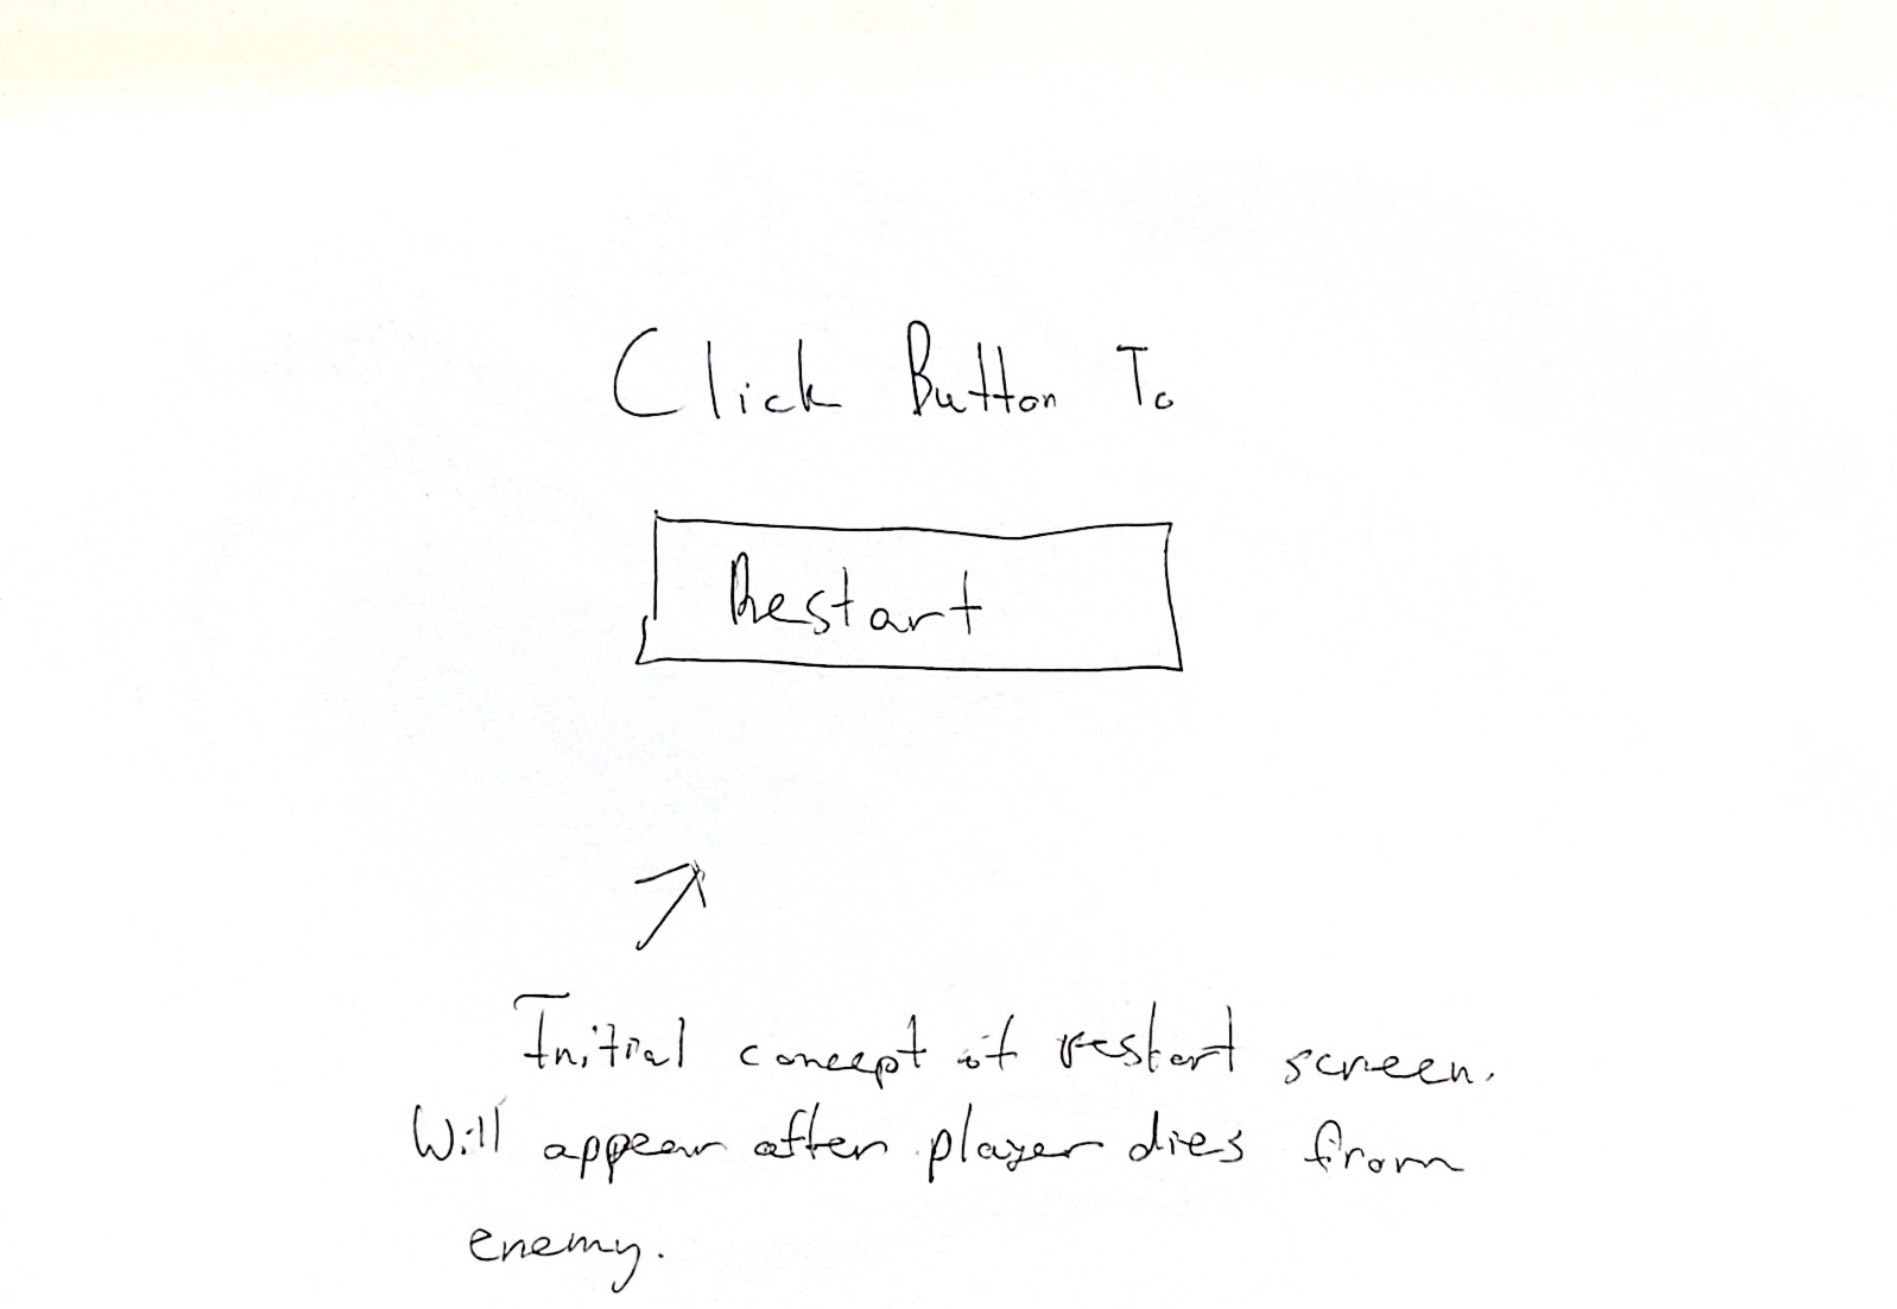 Click Button To
Restart
Initial concept of restart screen.
Will appear after player dies from
enemy.